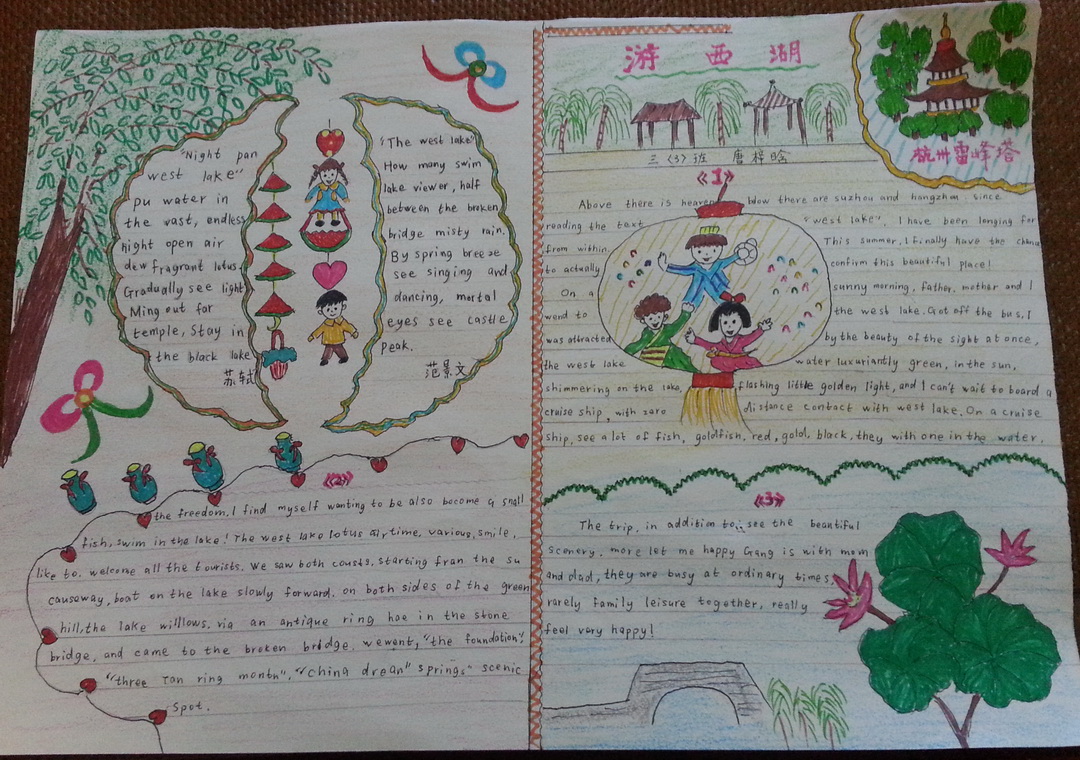 "Night pan
west lake"
pu water in
the vast, endless
night open air
dew fragrant lotus.
Gradually see light
Ming out for
temple, Stay in
the black lake
苏轼
"The west lake"
How many swim
lake viewer, half
between the broken
bridge misty rain.
By spring breeze
see singing and
dancing, mortal
eyes see castle
peak.
范景文
游 西 湖
三〈3〉班 唐梓晗
杭州雷峰塔
《1》
Above there is heaven blow there are suzhou and hangzhou. since
reading the text "west lake". I have been longing for
from within. This summer, I finally have the chance
to actually confirm this beautiful place!
On a sunny morning, father, mother and I
wend to the west lake. Got off the bus, I
was attracted by the beauty of the sight at once,
the west lake water luxuriantly green, in the sun,
shimmering on the lake, flashing little golden light, and I can't wait to board a
cruise ship, with zero distance contact with west lake. On a cruise
ship, see a lot of fish, goldfish, red, gold, black, they with one in the water.
《2》
the freedom. I find myself wanting to be also become a small
fish, swim in the lake! The west lake lotus air time, various, smile,
like to. welcome all the tourists. We saw both coasts. starting fran the su
causeway, boat on the lake slowly forward. on both sides of the green
hill, the lake willlows. via an antique ring hoe in the stone
bridge, and came to the broken bridge. we went, "the foundation",
"three Tan ring month", "China drean" springs" scenic
spot.
《3》
The trip, in addition to see the beautiful
scenery. more let me happy Gang is with mom
and dad, they are busy at ordinary times,
rarely family leisure together, really
feel very happy!